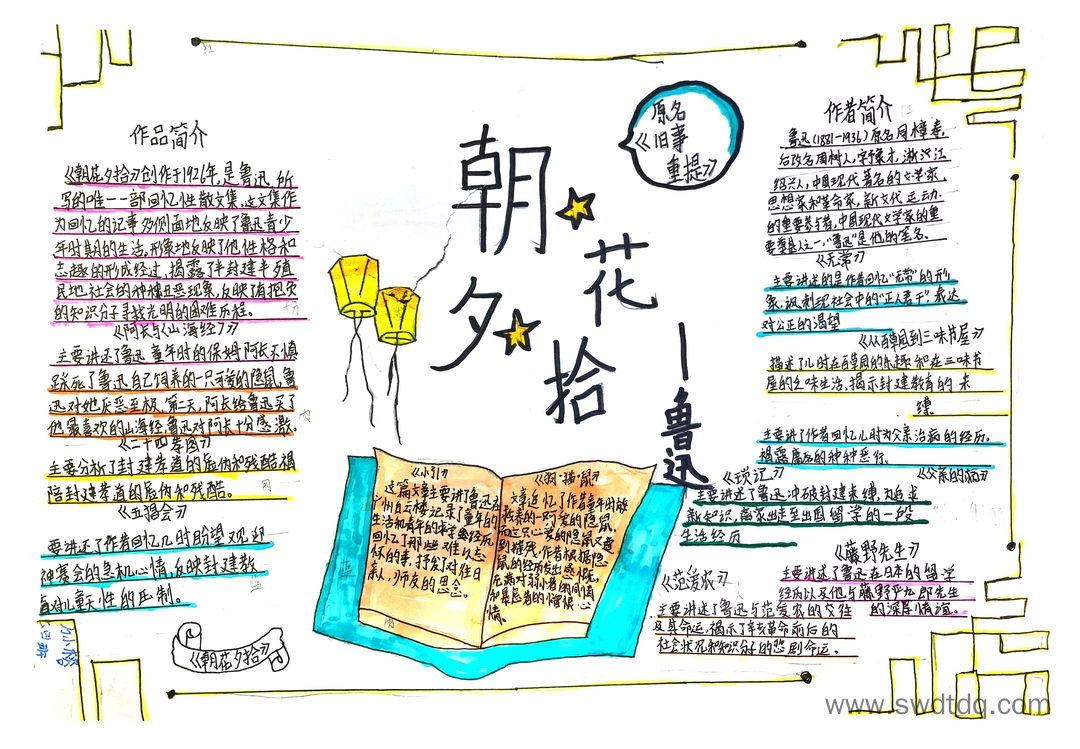 作品简介
《朝花夕拾》创作于1926年,是鲁迅所
写的唯一一部回忆性散文集,这文集作
为回忆的记事多侧面地反映了鲁迅青少
年时期的生活,形象地反映了他性格和
志趣的形成经过,揭露了半封建半殖
民地社会的种种丑恶现象,反映了有抱负
的知识分子寻找光明的困难历程。
《阿长与《山海经》》
主要讲述了鲁迅童年时的保姆阿长不慎
踩死了鲁迅自己饲养的一只可爱的隐鼠,鲁
迅对她厌恶至极、第二天,阿长给鲁迅买了
他最喜欢的山海经,鲁迅对阿长十分感激。
《二十四孝图》
主要分析了封建孝道的虚伪和残酷揭
陪封建孝道的虚伪和残酷。
《五猖会》
要讲述了作者回忆儿时盼望观迎
神赛会的急切心情,反映封建教
育对儿童天性的压制。
《朝花夕拾》
原名
《旧事
重提》
朝
花
夕
拾
—鲁迅
《小引》
这篇文章主要讲了鲁迅在
广州白云楼记录了童年的
生活和青年的求学的经历
回忆了那些又难以忘
怀的事,抒发了对往日
亲人,师友的思念。
《狗·猫·鼠》
文章追忆了作者童年时救
救养的一只可爱的隐鼠
先这只心爱的隐鼠又遭
到摧残,作者根据隐
鼠的经历发出感慨,
充满对弱小者的同情
和暴虐者的憎恨
情。
作者简介
鲁迅(1881-1936)原名周樟寿,
后改名周树人,字豫才,浙江
绍兴人,中国现代著名的文学家,
思想家和革命家,新文化运动
的重要参与者,中国现代文学家的重
要奠基人之一,“鲁迅”是他的笔名。
《无常》
主要讲述的是作者回忆“无常”的形
象,讽刺现社会中的“正人君子”表达
对公正的渴望
《从百草园到三味书屋》
描述了儿时在百草园的乐趣和在三味书
屋的乏味生活,揭示封建教育的束
缚
主要讲了作者回忆儿时为父亲治病的经历。
揭露庸医的种种恶行。
《父亲的病》
《琐记》
主要讲述了鲁迅冲破封建束缚,为追求
新知识,离家出走至出国留学的一段
生活经历
《藤野先生》
主要讲述了鲁迅在日本的留学
经历以及他与藤野严九郎先生
的深厚情谊。
《范爱农》
主要讲述了鲁迅与范爱农的交往
及其命运,揭示了辛亥革命前后的
社会状况和知识分子的悲剧命运。
www.swdtdq.com